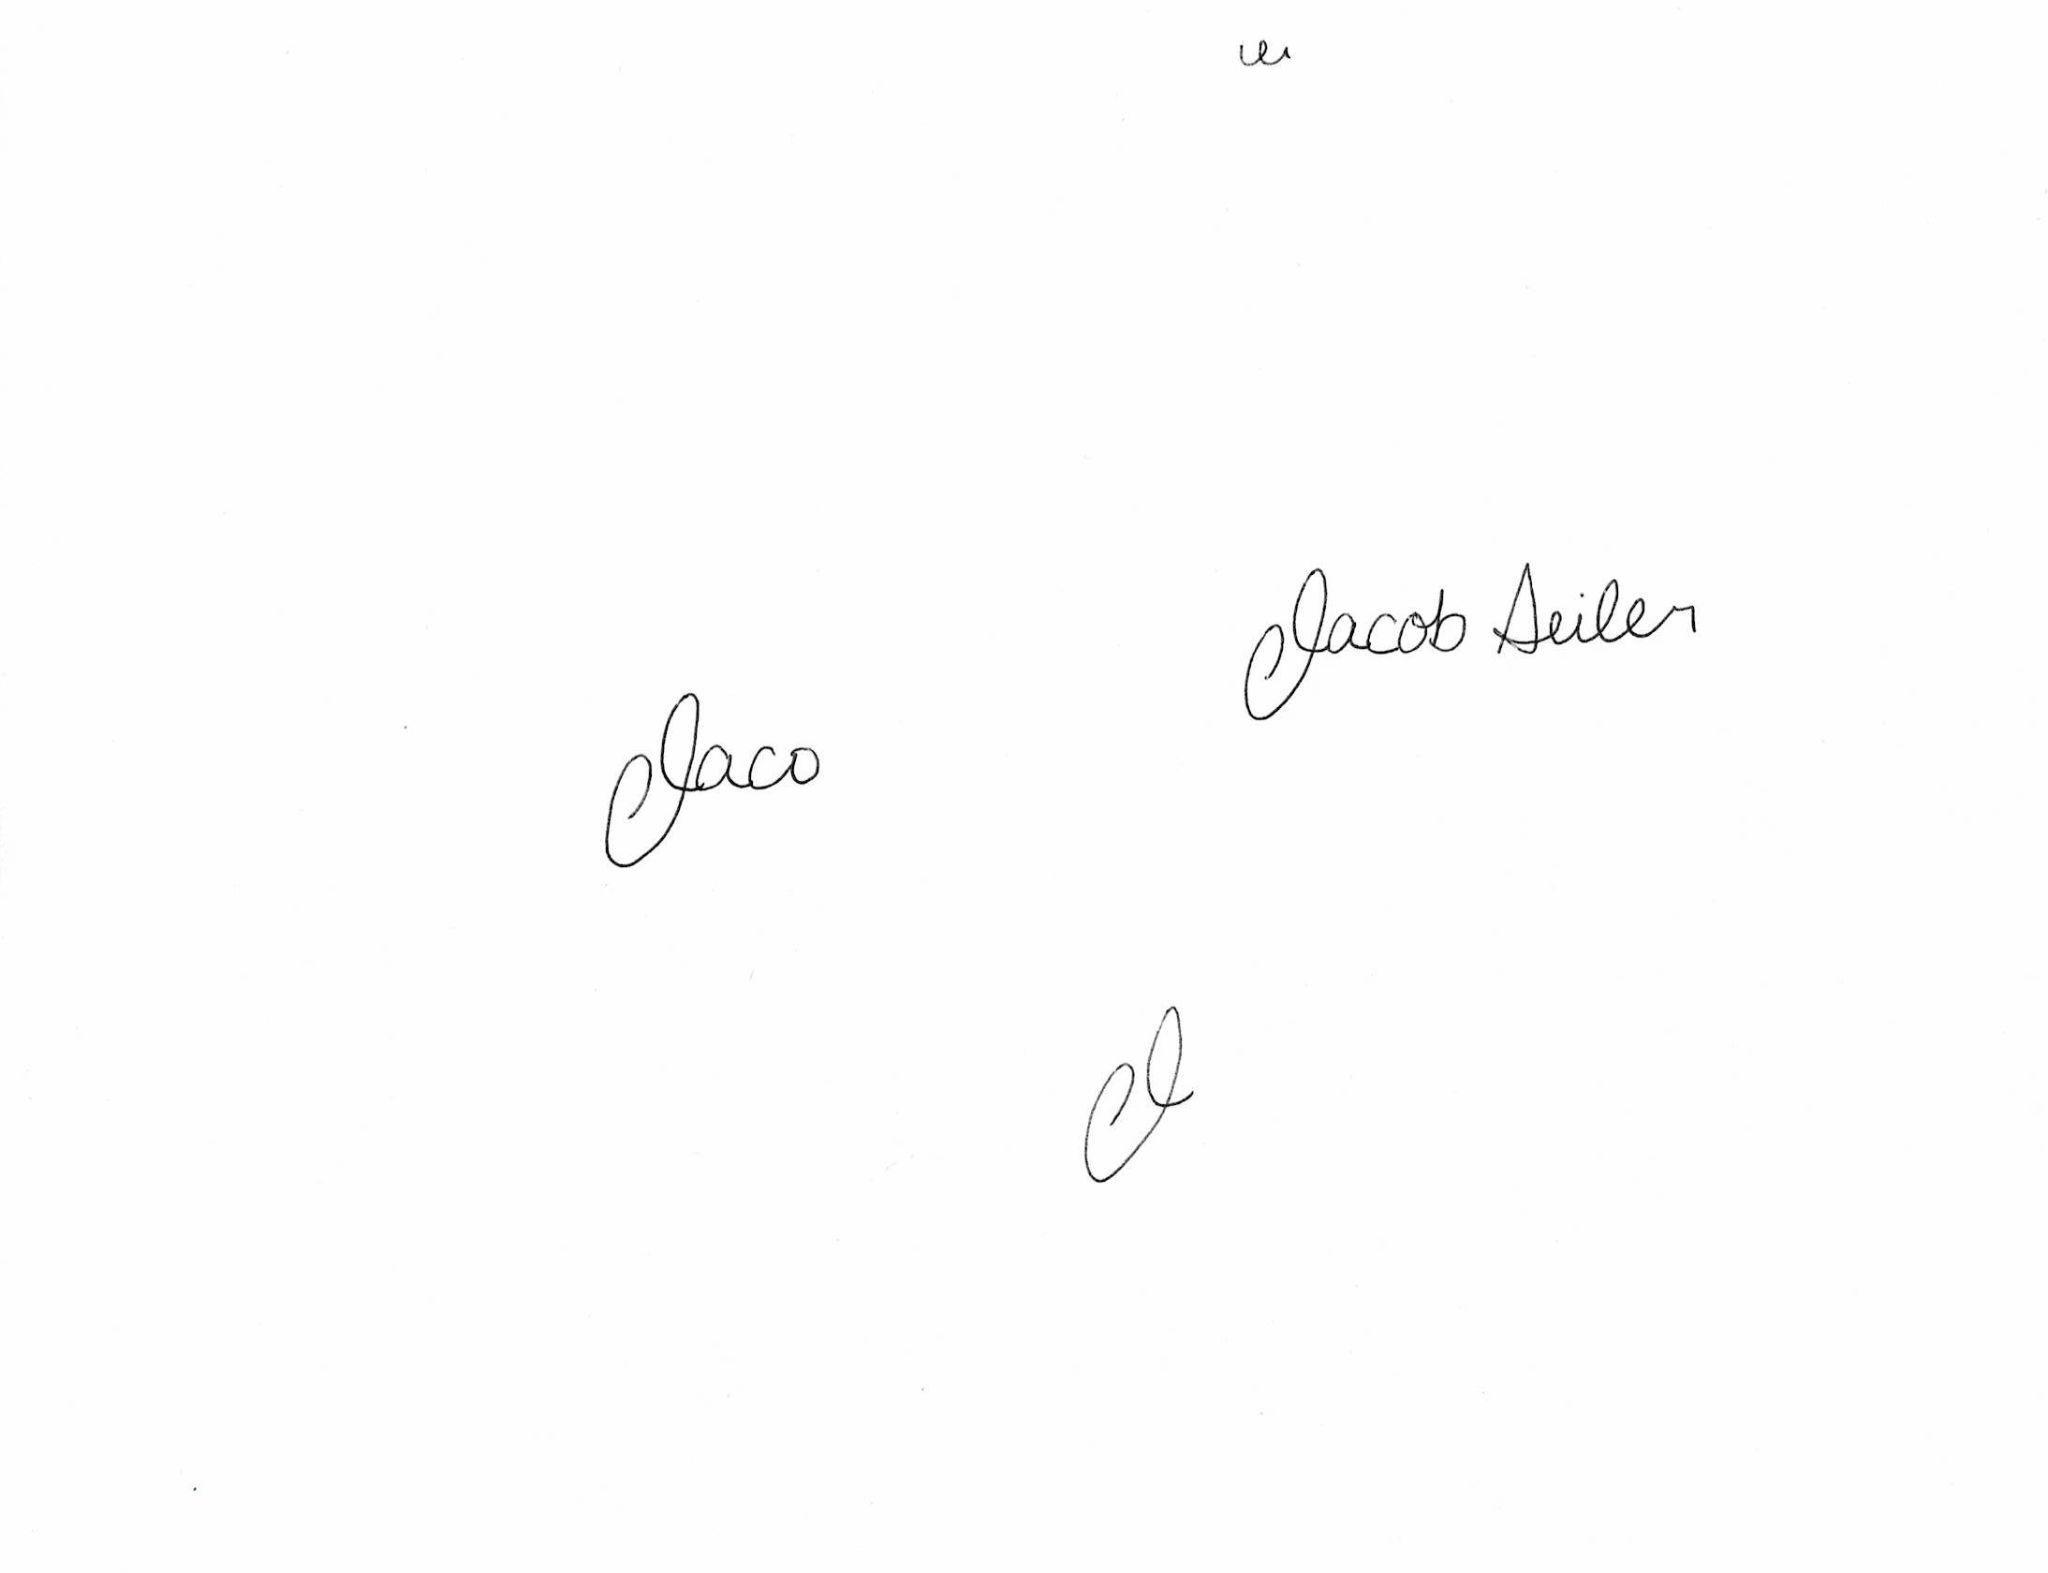 Jacob Seiler
Jaco
J